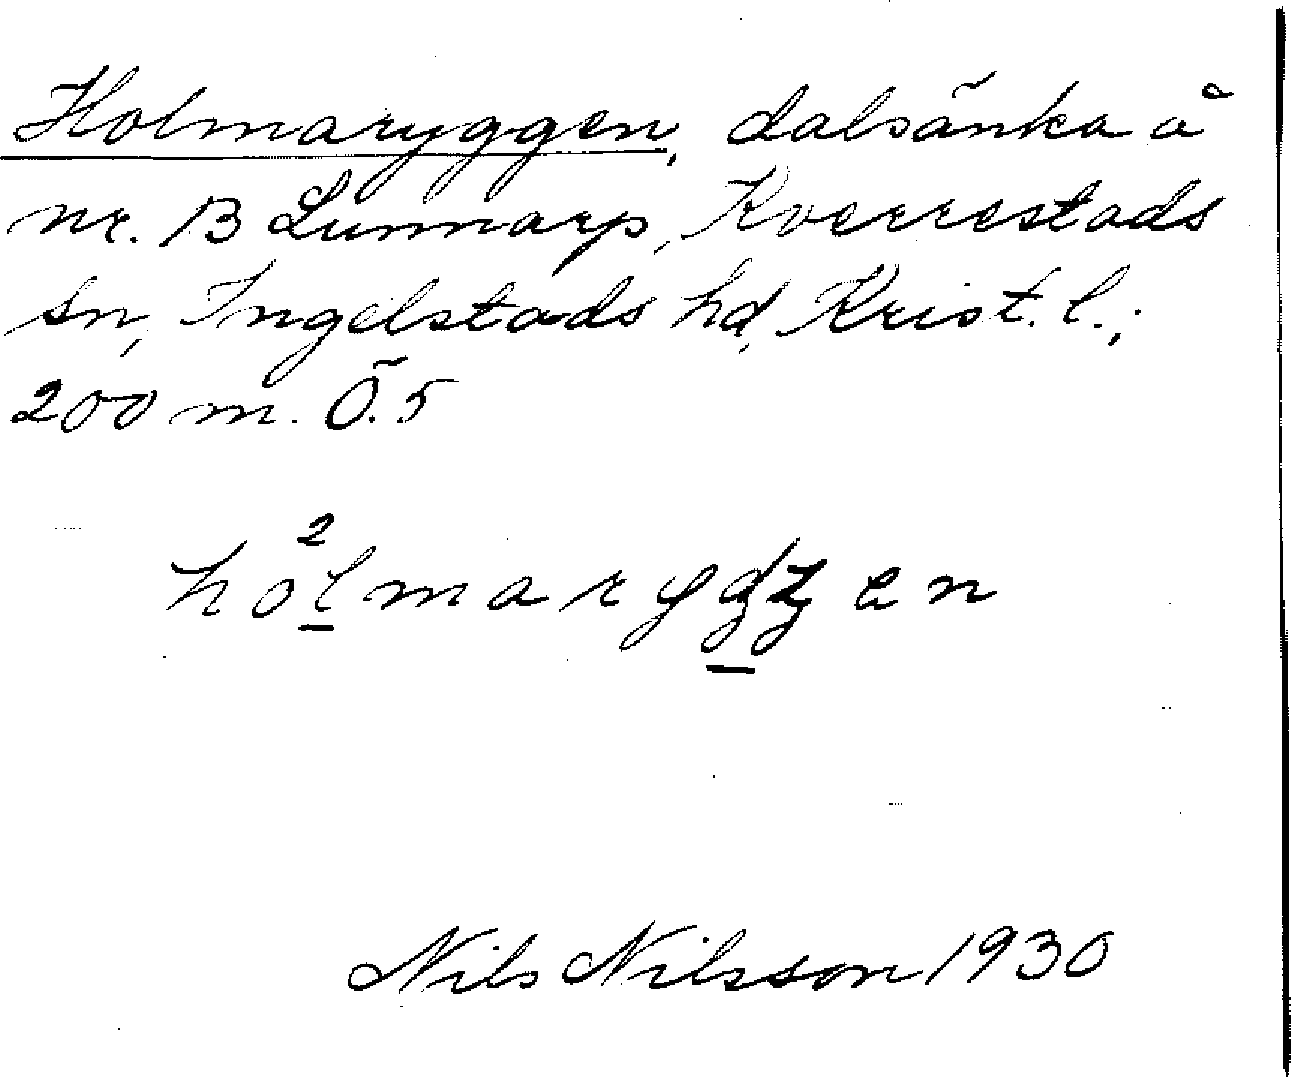 Holmaryggen, dalsänka å
nr. 13 Lunnarp, Kverrestads
sn, Ingelstads hd, Krist. l.;
200 m. Ö. 5
ho²lmarygʒen
Nils Nilsson 1930